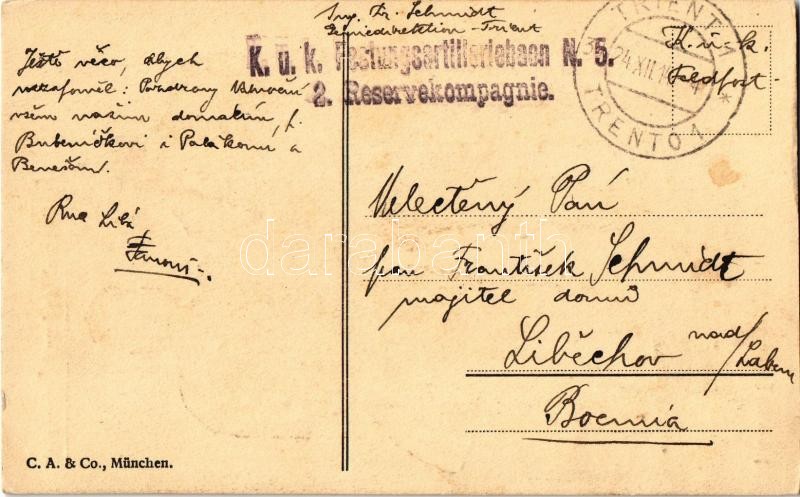 Ing. Fr. Schmidt
Geniedirektion - Trient
K. u. k. Festungsartilleriebaon N. 5.
2. Reservekompagnie.
TRIENT 1
24.XII.14
TRENTO 1
K. u. k.
Feldpost -
Ještě něco, abych
nezapoměl: Pozdravy Vánoční
všem našim domácím, f.
Bubeníčkovi i Palákovu a
Benešům.
Ruce Líbá
Velectěný Pán
pan František Schmidt
majitel domu
Liběchov nad/Labem
Boemia
C. A. & Co., München.
darabanth